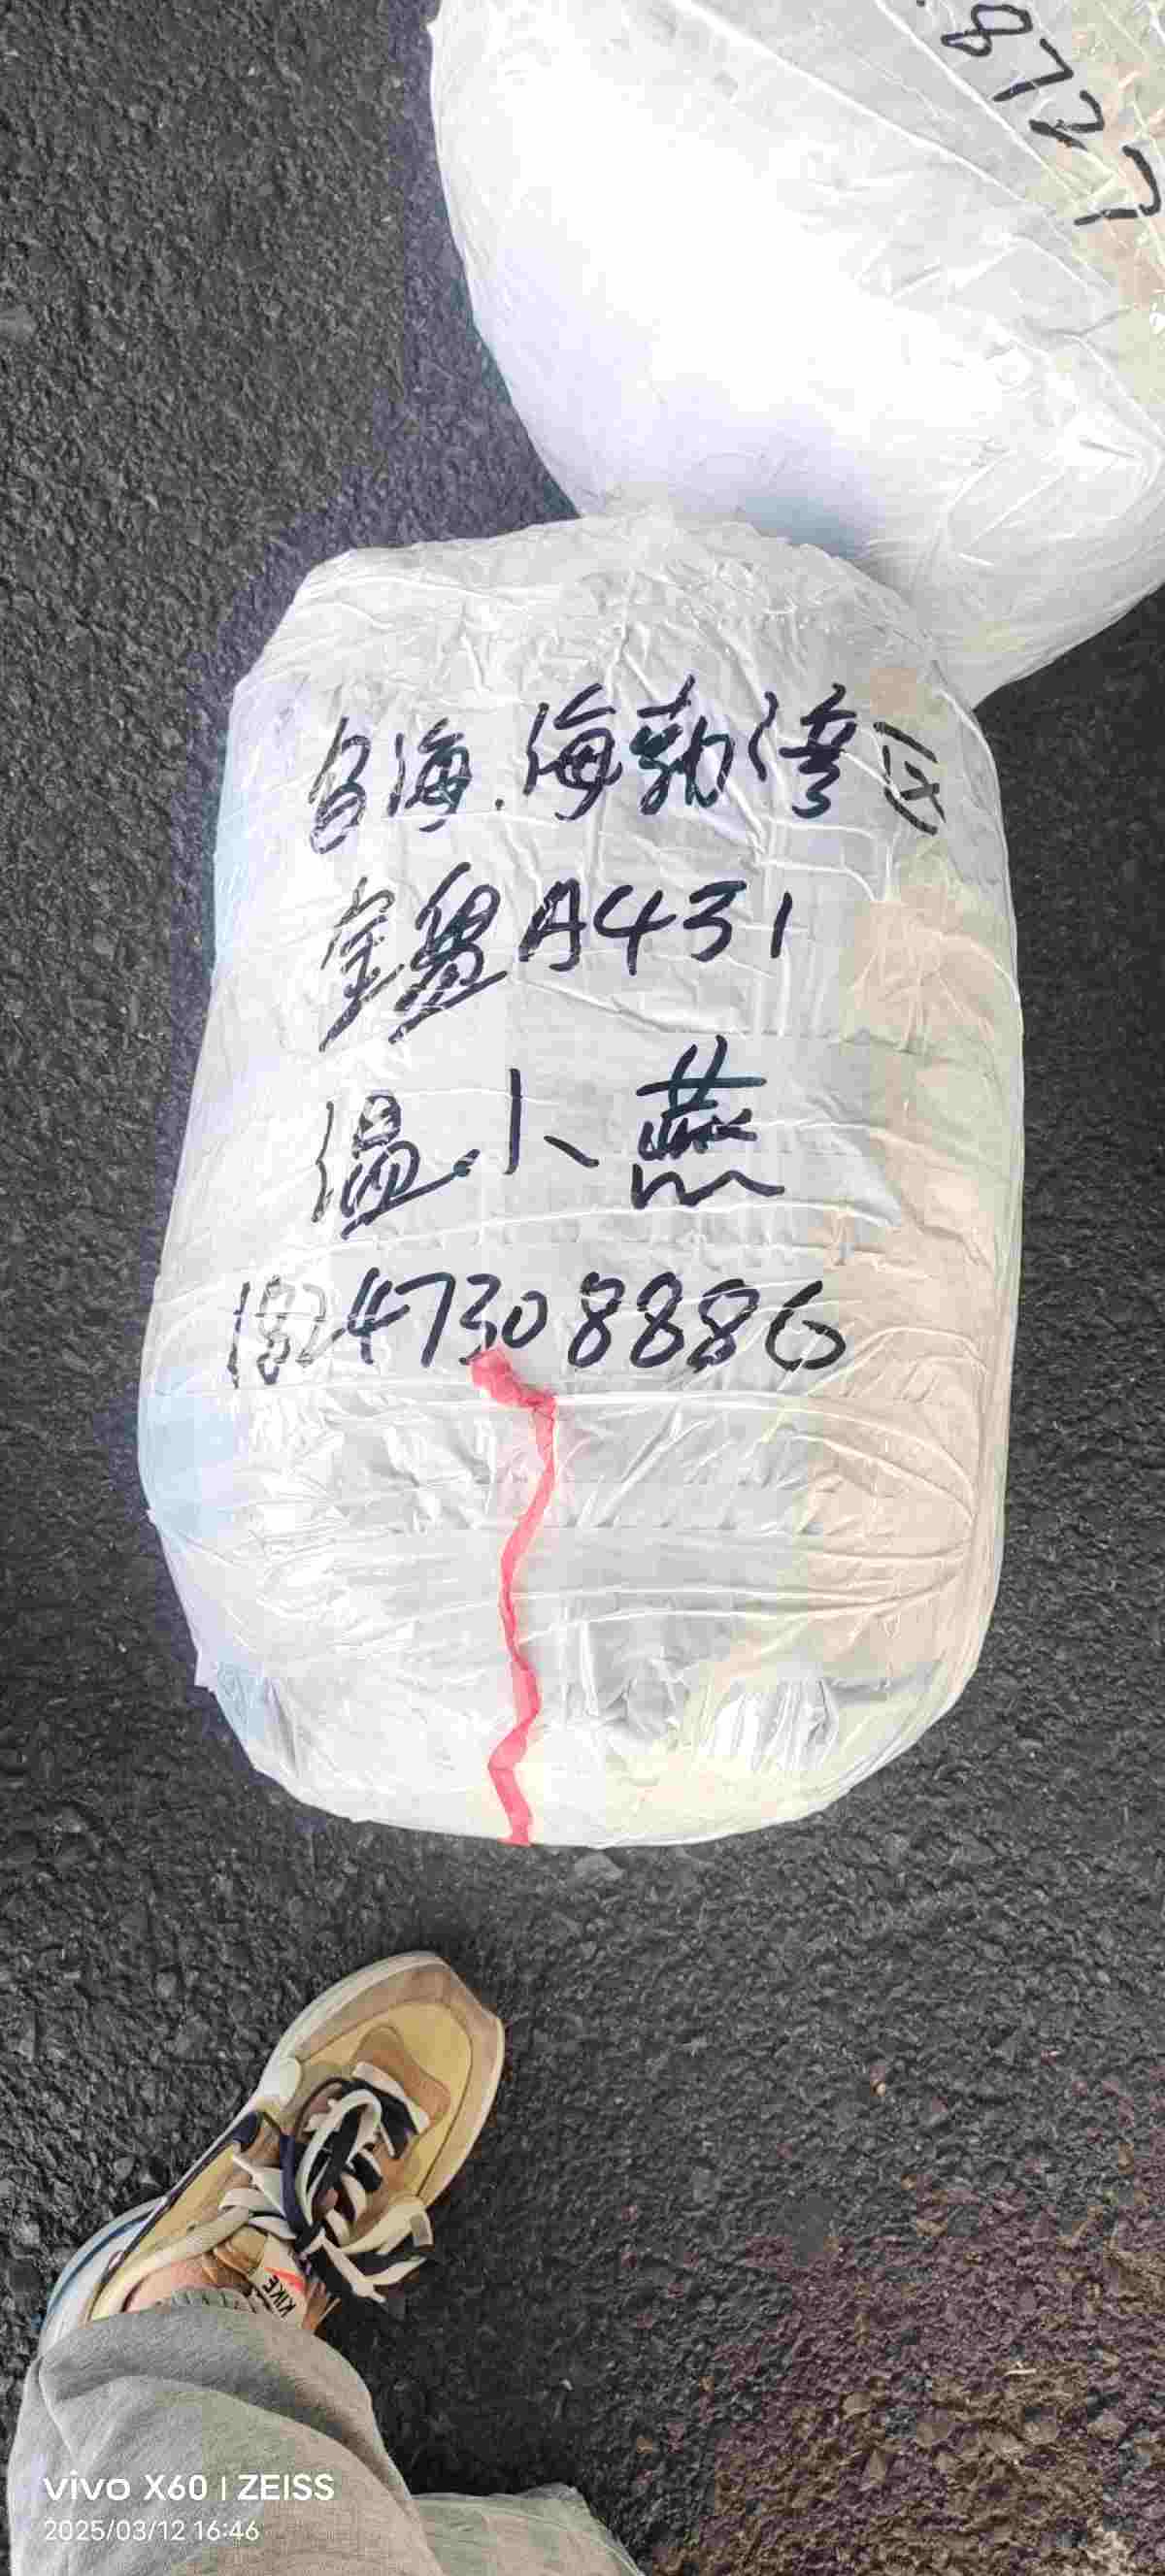 8777
乌海.海勃湾区
金盘A431
温小燕
18247308886
KIKE
vivo X60 | ZEISS
2025/03/12 16:46